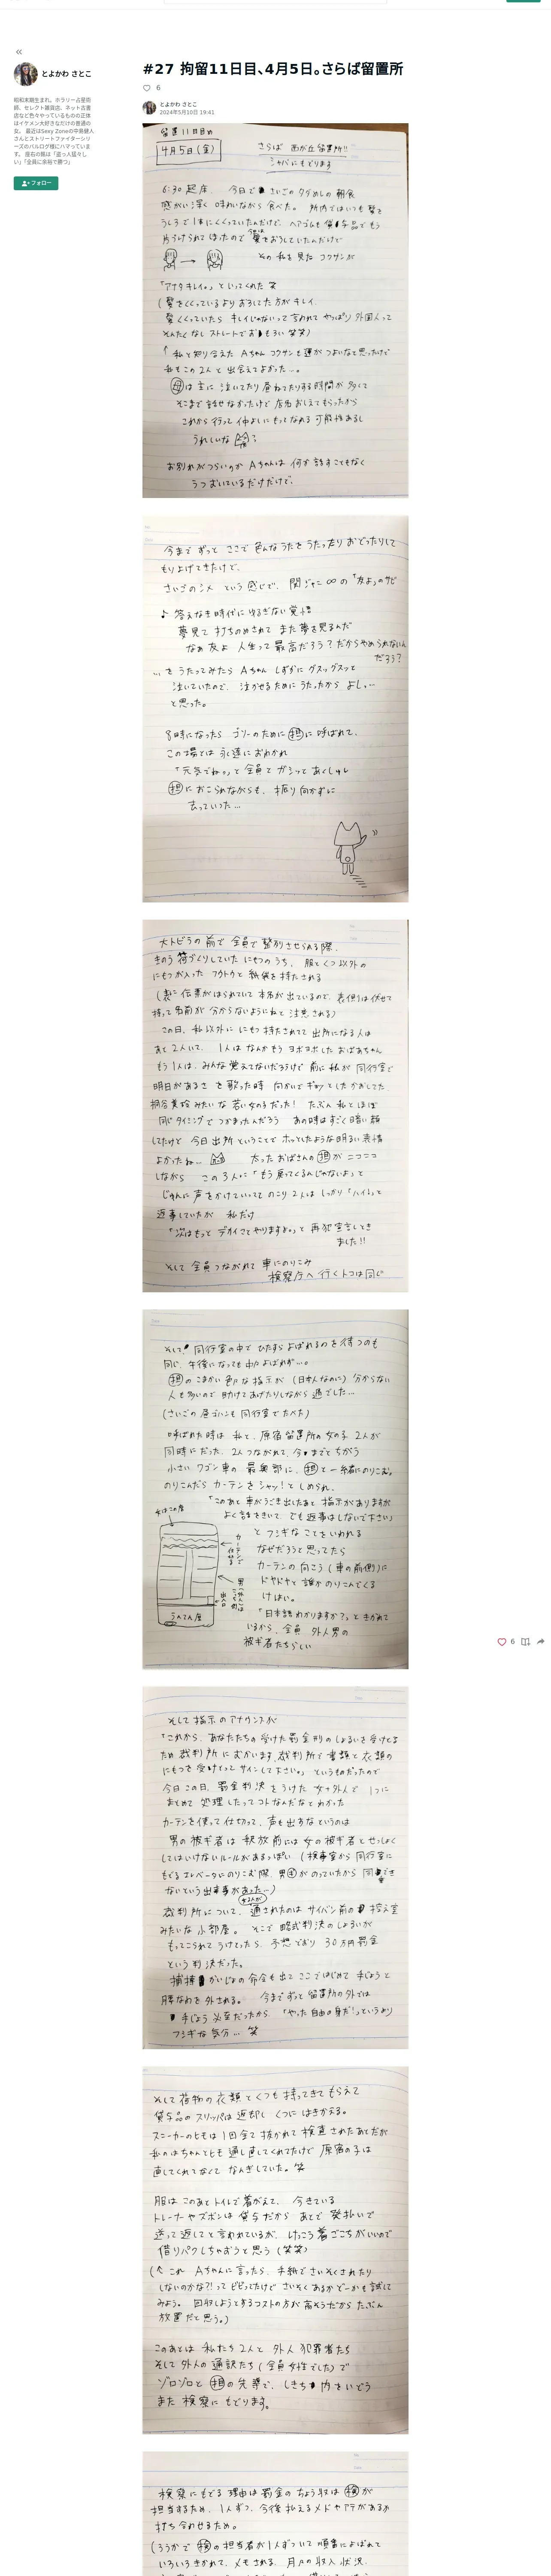 #27 拘留11日目、4月5日。さらば留置所
6
とよかわ さとこ
2024年5月10日 19:41
とよかわ さとこ
昭和末期生まれ。ホラリー占星術
師、セレクト雑貨店、ネット古書
店など色々やっているものの正体
はイケメン大好きなだけの普通の
女。最近はSexy Zoneの中島健人
さんとストリートファイターシリ
ーズのバルログ様にハマっていま
す。座右の銘は「盗っ人猛々し
い」「全員に余裕で勝つ」
フォロー
留置11日目
4月5日(金)
さらば 西が丘留置所!!
シャバにもどります
6:30 起床. 今日で さいごのタダめしの朝食
感がい深く 味わいながら 食べた。 所内ではいつも髪を
うしろで1本にくくっていたんだけど、ヘアゴムも貸与品でもう
片づけられてしまったので 髪をおろしていたんだけど
その私を見た コクサンが
「アナタキレイ。」といってくれた 笑
(髪をくくっているより おろしてた方がキレイ.
髪くくっていたら キレイじゃないって言われて やっぱり外国人って
そんたくなし ストレートでおもろい 笑笑)
↑ 私と知り合えた Aちゃん コクサンも運がつよいなと思ったけど
私もこの2人と出会えてよかった…。
は主に 泣いてたり 昼ねてたりする時間が多くて
そこまで話せなかったけど 店名おしえてもらったから
これから行って 仲よしにもってなれる可能性あるし
うれしいな
お別れがつらいのか Aちゃんは 何か話すこともなく
うつむいているだけだけで.
今までずっと ここで 色んなうたを うたったり おどったりして
もり上げてきたけど、
さいごのシメ という感じで、関ジャニ∞の「友よ」のサビ
♪ 答えなき時代に ゆるぎない覚悟
夢見て 打ちのめされて また夢を見るんだ
なぁ友よ 人生って最高だろう？だからやめられないん
だろう？
… をうたってみたら Aちゃん しずかに グスッグスッと
泣いていたので、泣かせるために うたったから よし…
と思った。
8時になったら ゴソーのために 担に呼ばれて、
この場とは 永遠に おわかれ
「元気でね。」と全員と ガシッと あくしゅし
担におこられながらも、振り向かずに
去っていった…
大トビラの前で 全員で整列させられる際、
きのう荷づくりしていた にもつのうち、服とくつ以外の
にもつが入った フクロウと紙袋を持たされる
(裏に伝票がはられていて 本名が出ているので、表側は伏せて
持って名前が分からないようにねと 注意される)
この日、私以外に にもつ持たされてて 出所になる人は
あと2人いて、 1人は なんかもう ヨボヨボした おばあちゃん
もう1人は、みんな覚えてないだろうけど 前に 私が同行室で
明日があるさ を歌った時 向かいで ギョッとした かおしてた、
桐谷美玲みたいな 若い女の子だった！ たぶん 私と ほぼ
同じタイミングで つかまったんだろう あの時はすごく暗い顔
してたけど 今日出所ということで ホッとしたような明るい表情
よかったね… 太ったおばさんの 担が ニコニコ
しながら この3人に「もう戻ってくるんじゃないよ」と
じゅんに 声をかけていってて のこり2人は しっかり「ハイ」と
返事していたが 私だけ
「次はもっと デカイことやりますよ。」と 再犯宣言しとき
ました!!
そして 全員つながれて 車にのりこみ
検察庁へ 行くトコは同じ
そして 同行室の中で ひたすら よばれるのを待つのも
同じ. 午後になっても よばれず…。
担のこまかい 色々な指示が (日本人なのに) 分からない
人も多いので 助けてあげたりしながら 過ごした…
(さいごの昼ゴハンも 同行室でたべた)
呼ばれた時は 私と、原宿留置所の女の子 2人が
同時にだった. 2人つながれて、今までとちがう
小さいワゴン車の 最奥部に、担と一緒にのりこむ。
のりこんだら カーテンをシャッ！としめられ、
「このあと 車がうごき出したあと 指示がありますが
よく話をきいて、でも返事はしないで下さい」
と フシギなことをいわれる
なぜだろうと思ってたら
カーテンの向こう (車の前側)に
ドヤドヤと 誰かのりこんでくる
けはい。
「日本語わかりますか？」と きかれて
いるから、全員 外人男の
被ギ者たちらしい
カーテンで
仕切る
出入口
うんてん席
そして指示のアナウンスが
「これから、あなたたちの 受けた罰金刑の しょるいを受けとる
ため 裁判所に むかいます. 裁判所で 書類と衣類の
にもつを受けとって サインして下さい。」 というものだったので
今日この日、罰金判決を うけた 女+外人で 1つに
まとめて 処理したって コトなんだなとわかった
カーテンを使って仕切って、声も出すなというのは
男の被ギ者は 釈放前には 女の被ギ者と せっしょく
してはいけないルールがあるっぽい (検事室から 同行室に
もどる エレベータにのりこむ際 男がのっていたから 同でき
ないという出来事があった…)
裁判所について、通されたのは サイバン前の 控え室
みたいな 小部屋。 そこで 略式判決の しょるいが
もってこられて うけとったら、予想どおり 30万円罰金
という判決だった。
今までずっと 留置所の外では
手じょう 必至だったから、「やった自由の身だ!」というより
フシギな気分… 笑
そして荷物の衣類と くつも 持ってきてもらえて
貸与品の スリッパは返却し くつに はきかえる。
スニーカーのヒモは 1回全て抜かれて 検査されたあとだが
私のはちゃんとヒモ通し直してくれてたけど 原宿の子は
直してくれてなくて なんぎしていた。笑
服は このあとトイレで着がえて、 今きている
トレーナーやズボンは 貸与だから あとで 発払いで
送って返してと言われているが、けっこう着ごこちがいいので
借りパクしちゃおうと思う (笑笑)
(↑ これ Aちゃんに言ったら、手紙で さいそくされたり
しないのかな?! って ビビってたけど さいそくあるかどーかも試して
みよう。 回収しようとするコストの方が高そうだから たぶん
放置だと思う。)
このあとは 私たち2人と 外人犯罪者たち
そして外人の通訳たち (全員女性でした) で
ゾロゾロと 担の先導で、しきち内をいどう
また 検察に もどります。
検察にもどる理由は 罰金の ちょう収は 検が
担当するため、1人ずつ、今後払えるメドやアテがあるか
打ち合わせるため。
(ろうかで 検の担当者が1人ずついて 順番によばれて
いろいろきかれて、メモされる. 月々の収入状況、
6